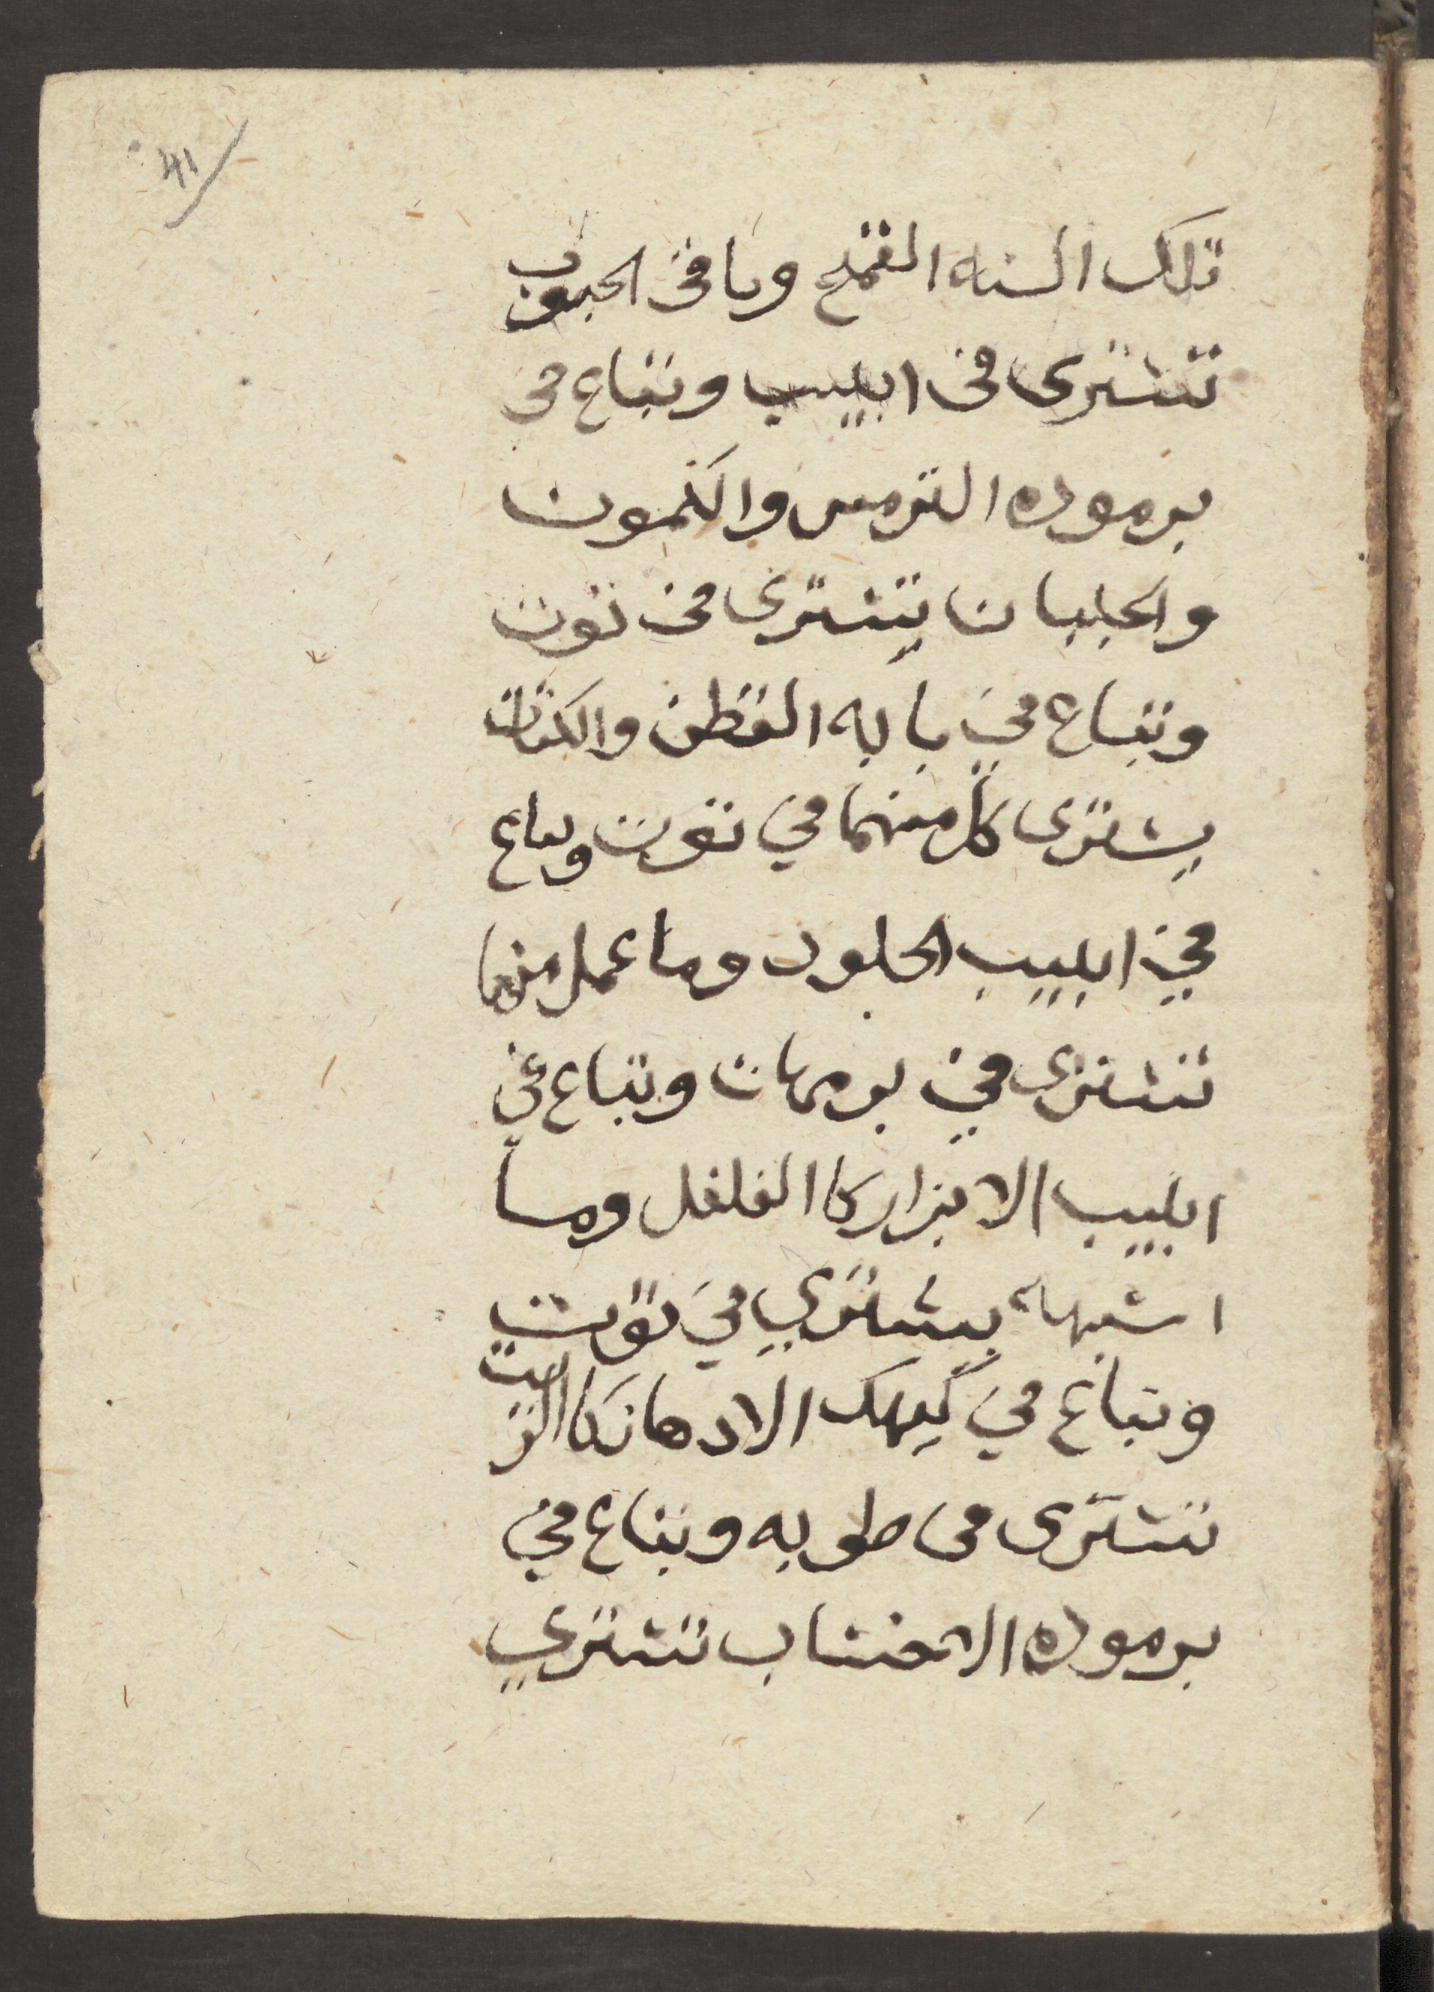 41
تلك السنه القمح وباقى الحبوب
تشترى فى ابيب وتباع فى
برموده الترمس والكمون
والجلبان يشترى فى توت
وتباع في بابه القطن والكتان
يشترى كل منهما في توت ويباع
في ابيب الجلود وما عمل منها
تشترى في برمهات وتباع في
ابيب الابزار كالفلفل وما
اشبهه يشتري في توت
وتباع في كيهك الادهان كالزيت
تشترى فى طوبه وتباع في
برموده الاخشاب تشتري